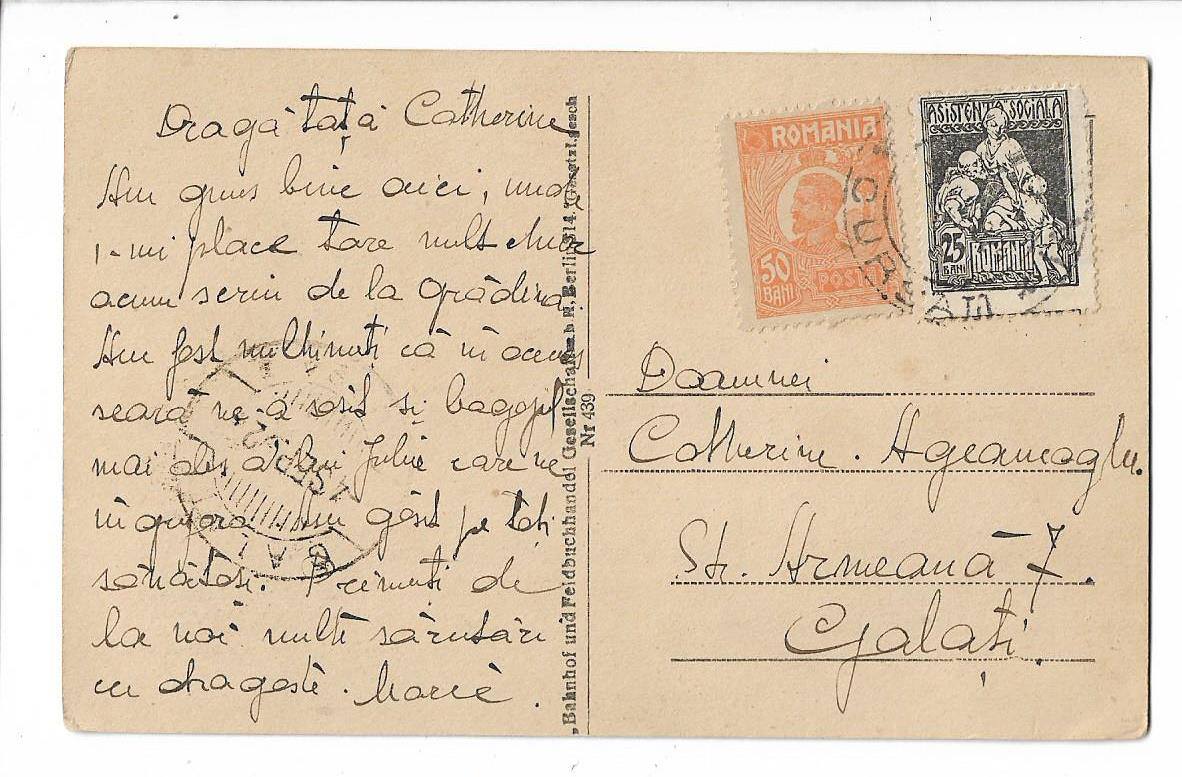 Dragă tață Catherine
Am ajuns bine aici, unde
i-mi place tare mult chiar
acum scriu de la grădina
Am fost mulțumiți că în aceeași
seară ne-a sosit și bagajul
mai ales a lui Julie care ne
îngrijora. Am găsit pe toți
sănătoși. Primiți de
la noi multe sărutări
cu dragoste. Marie.
„Bahnhof und Feldbuchhandel Gesellschaft m.b.H. Berlin 314. Gesetzl. gesch
Nr 439
ROMANIA
50 BANI
POSTA
ASISTENTA SOCIALA
25 BANI
ROMANIA
Doamnei
Catherine Ageamoglu.
Str. Armeană 7.
Galați.